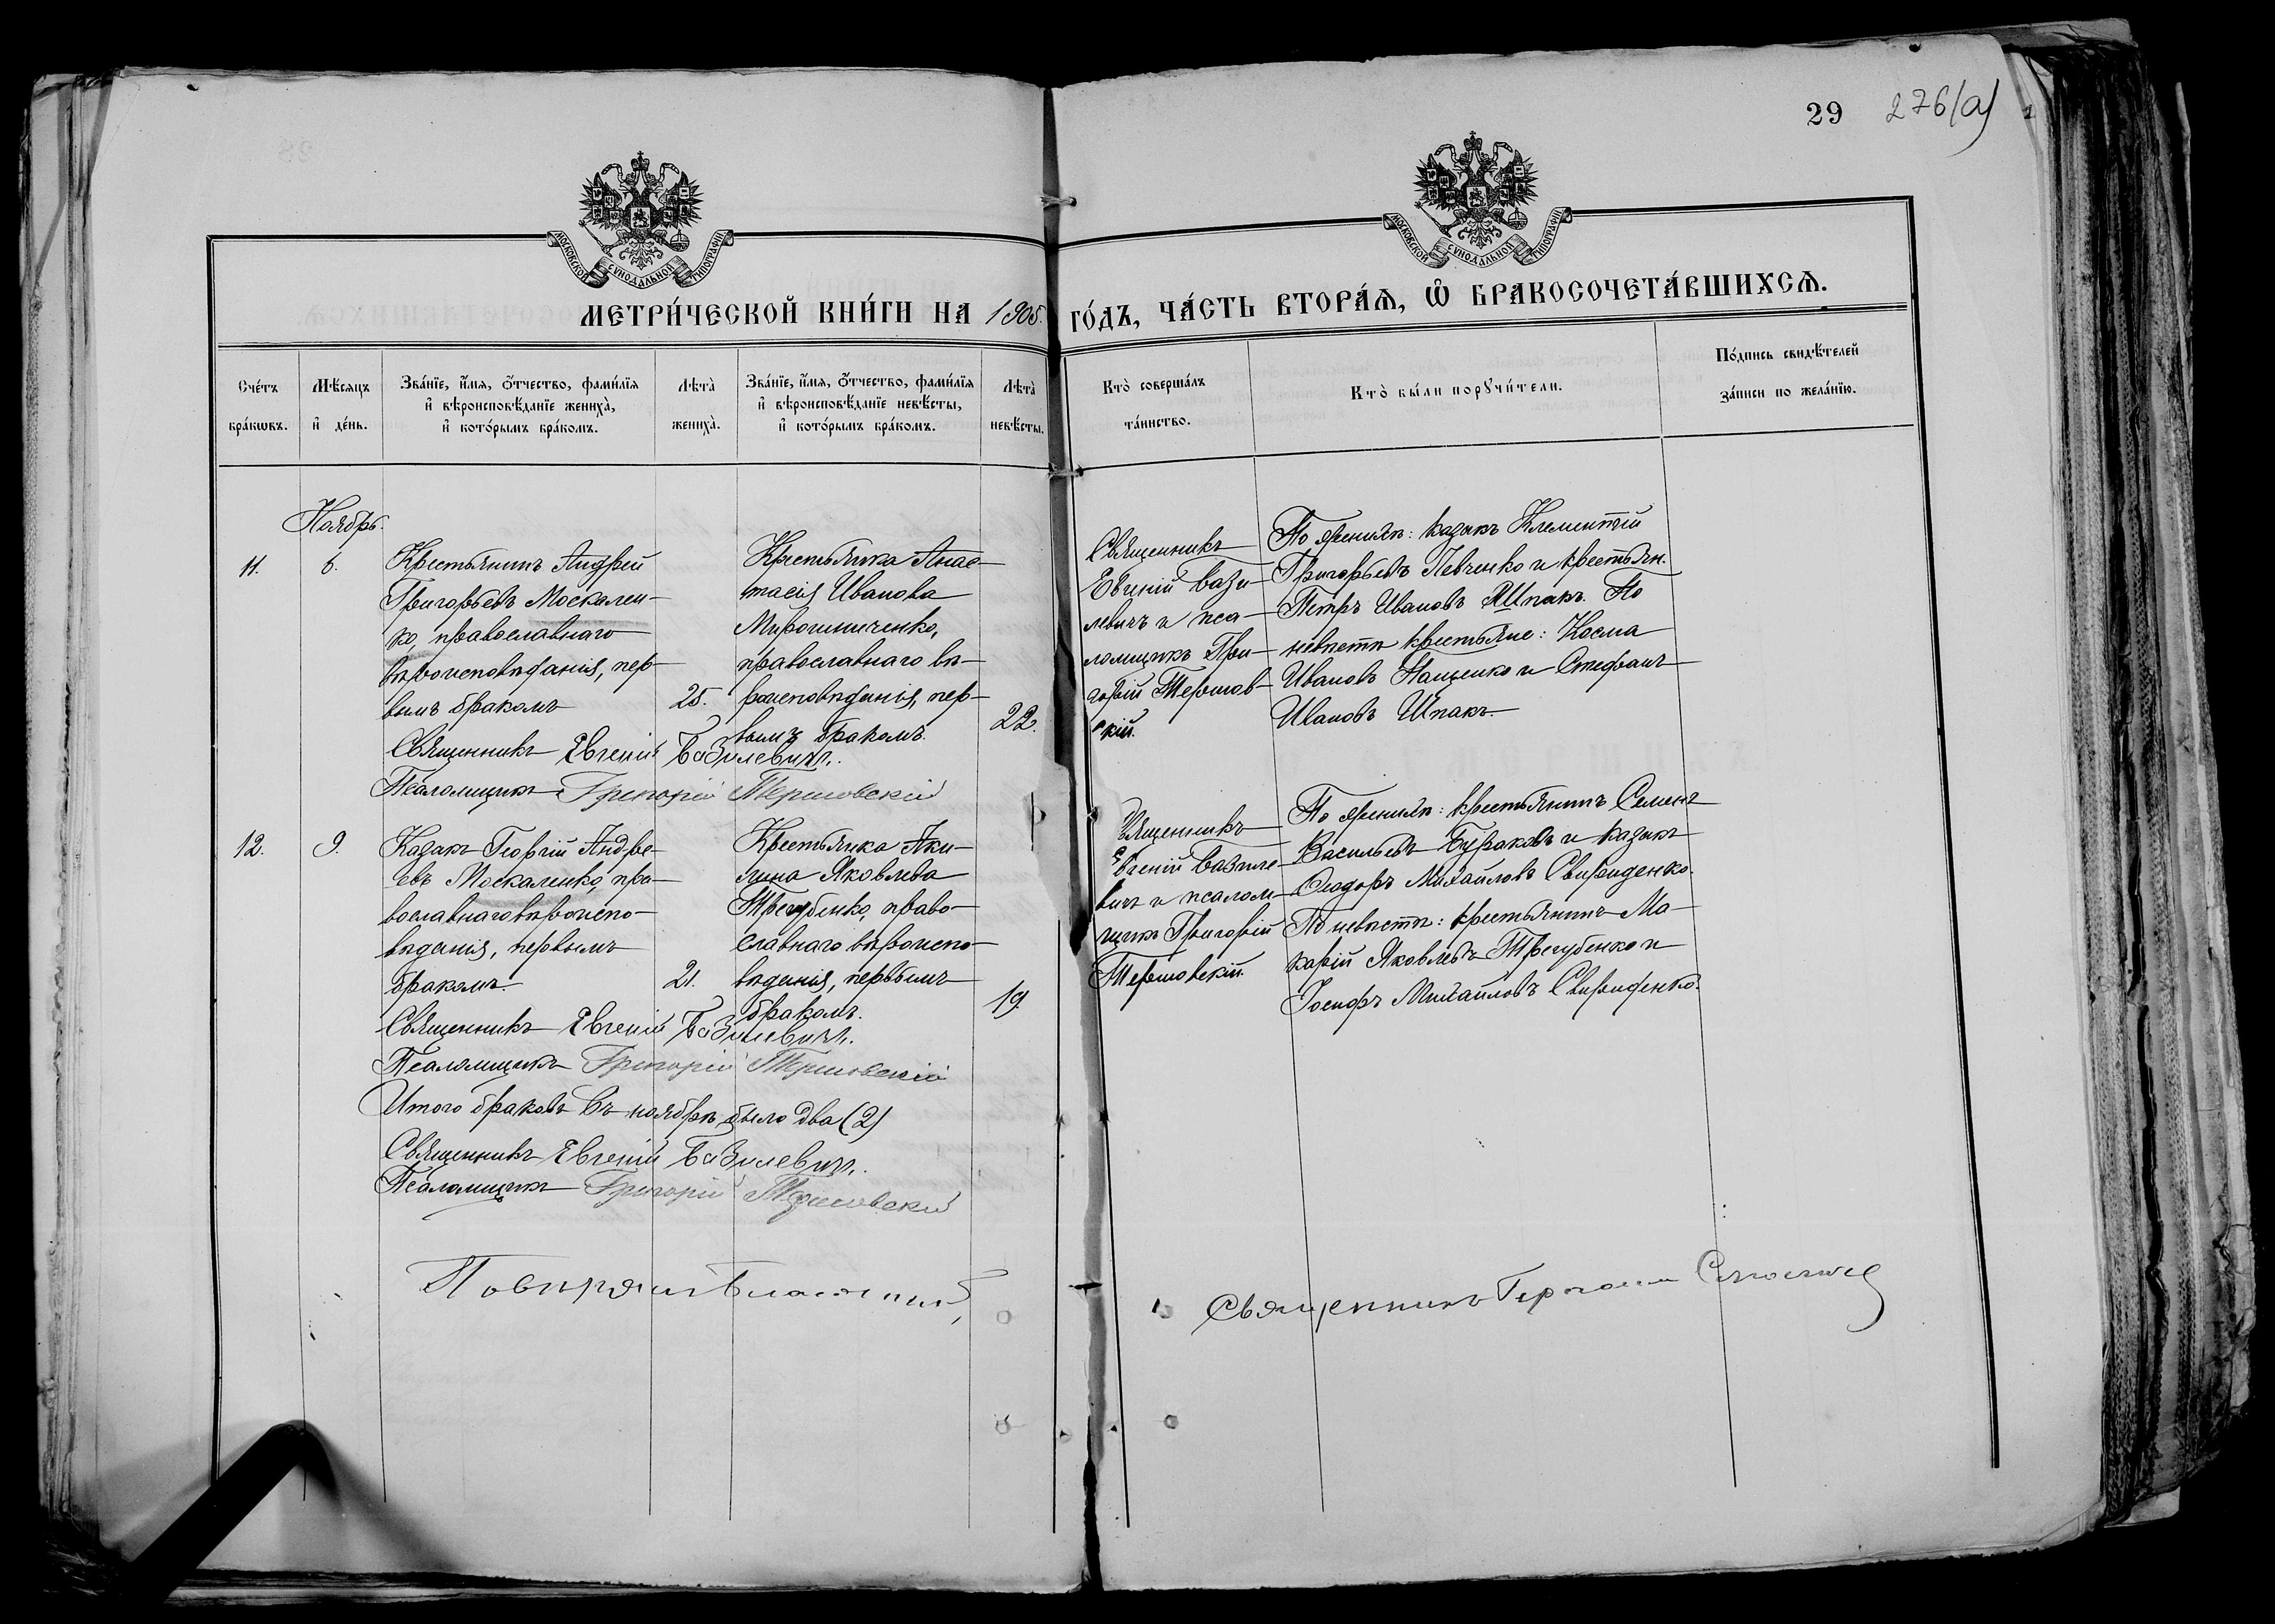 29 276(а)
МОСКОВСКОЙ СѴНОДАЛЬНОЙ ТИПОГРАФІИ
МОСКОВСКОЙ СѴНОДАЛЬНОЙ ТИПОГРАФІИ
МЕТРИ́ЧЕСКОЙ КНИ́ГИ НА 1905. ГО́ДЪ, ЧА́СТЬ ВТОРА́Ѧ, Ѽ БРАКОСОЧЕТА́ВШИХСѦ.
Сче́тъ
бра́кѡвъ.
Мѣ́сяцъ
и҆ де́нь.
Зва́нїе, и҆́мя, ѻ҆́тчество, фами́лїя
и҆ вѣроисповѣ́данїе жениха̀,
и҆ кото́рымъ бра́комъ.
Лѣта̀
жениха̀.
Зва́нїе, и҆́мя, ѻ҆́тчество, фами́лїя
и҆ вѣроисповѣ́данїе невѣ́сты,
и҆ кото́рымъ бра́комъ.
Лѣта̀
невѣ́сты.
Кто̀ соверша́лъ
та́инство.
Кто̀ бы́ли порꙋчи́тели.
По́дпись свидѣ́телей
за́писи по жела́нїю.
Ноябрь.
11.
6.
Крестьянинъ Андрей
Григорьевъ Москален-
ко, православнаго
вѣроисповѣданія, пер-
вымъ бракомъ
25.
Крестьянка Анас-
тасія Иванова
Мирошниченко,
православнаго вѣ-
роисповѣданія, пер-
вымъ бракомъ.
22.
Священникъ
Евгеній Бази-
левичъ и пса-
ломщикъ Гри-
горій Терновскій.
По женихѣ: казакъ Климентій
Григорьевъ Левченко и крестьян.
Петръ Ивановъ Шпакъ. По
невѣстѣ крестьяне: Косма
Ивановъ Пащенко и Стефанъ
Ивановъ Шпакъ.
Священникъ Евгеній Базилевичъ.
Псаломщикъ Григорій Терновскій
12.
9.
Казакъ Георгій Андре-
евъ Москаленко, пра-
вославнаго вѣроиспо-
вѣданія, первымъ
бракомъ.
21.
Крестьянка Аки-
лина Яковлева
Трегубенко, право-
славнаго вѣроиспо-
вѣданія, первымъ
бракомъ.
19.
Священникъ
Евгеній Базиле-
вичъ и псалом-
щикъ Григорій
Терновскій.
По женихѣ: крестьянинъ Семенъ
Васильевъ Бураковъ и казакъ
Ѳеодоръ Михайловъ Свириденко.
По невѣстѣ: крестьянинъ Ма-
карій Яковлевъ Трегубенко и
Іосифъ Михайловъ Свириденко.
Священникъ Евгеній Базилевичъ.
Псаломщикъ Григорій Терновскій
Итого браковъ въ ноябрѣ было два (2)
Священникъ Евгеній Базилевичъ.
Псаломщикъ Григорій Терновскій
Священникъ